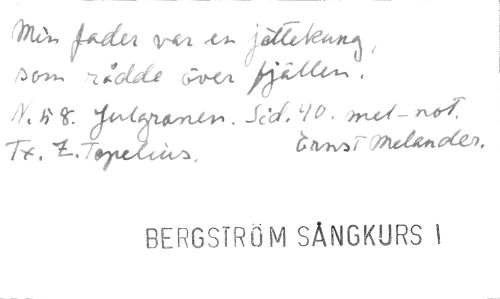 Min fader var en jättekung,
som rådde över fjällen.
N. 58. Julgranen. Sid. 40. mel-not.
Tx. Z. Topelius. Ernst Melander.
BERGSTRÖM SÅNGKURS I